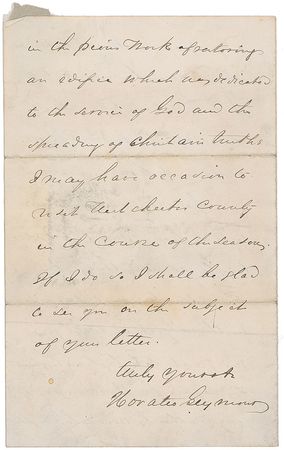 in the pious work of restoring
an edifice which was dedicated
to the service of God and the
spreading of Christain truths
I may have occasion to
visit Westchester County
in the course of the season,
If I do so I shall be glad
to see you on the subject
of your letter.
Truly yours &c
Horatio Seymour